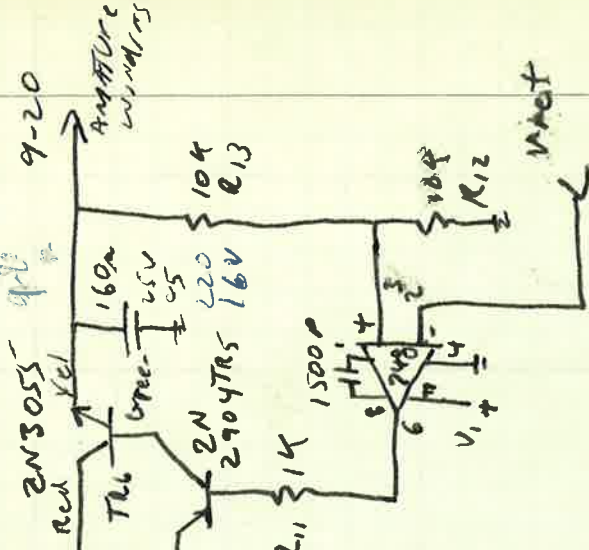 9-20
ARMATURE
WINDINGS
2N3055
Red
Yel
TR6
Green
160μ
25V
C5
220
16V
10K
R13
R12
Vmot
2N
2904 TR5
1K
R11
1500P
1
8
+
3
2
-
748
4
7
6
V1 +